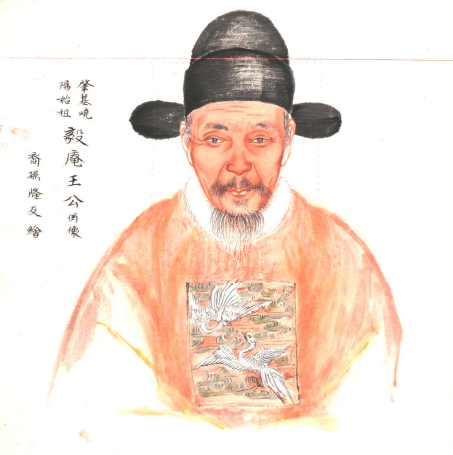 肇基嶢
陽始祖
毅庵王公肖像
裔孫隆友繪